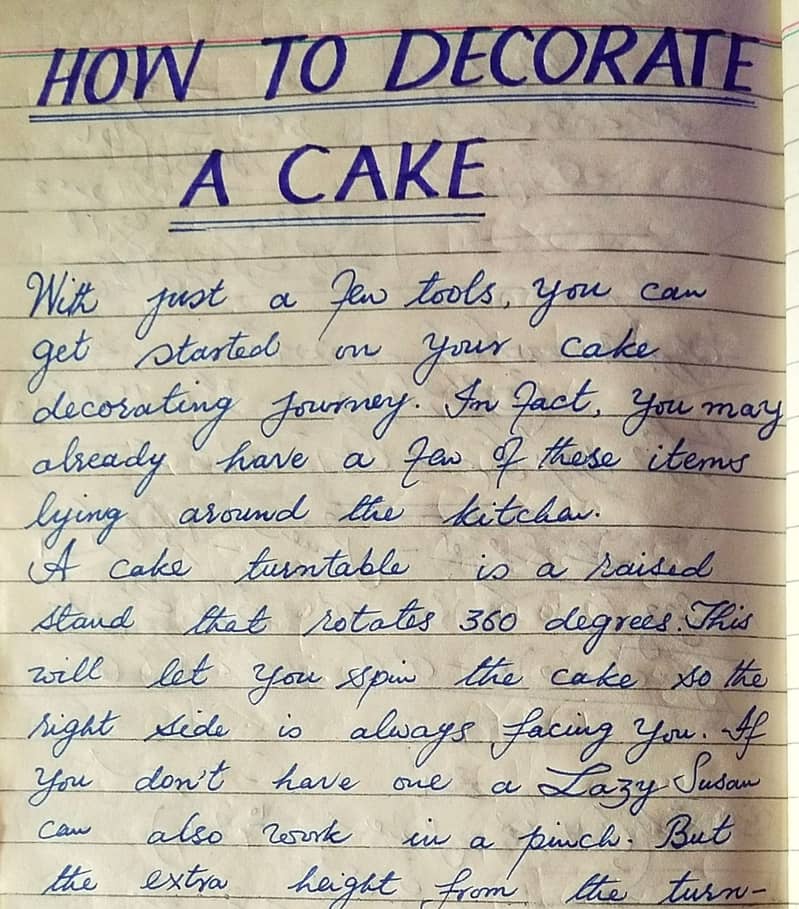 HOW TO DECORATE
A CAKE
With just a few tools, you can
get started on your cake
decorating journey. In fact, you may
already have a few of these items
lying around the kitchen.
A cake turntable is a raised
stand that rotates 360 degrees. This
will let you spin the cake so the
right side is always facing you. If
you don't have one a Lazy Susan
can also work in a pinch. But
the extra height from the turn-